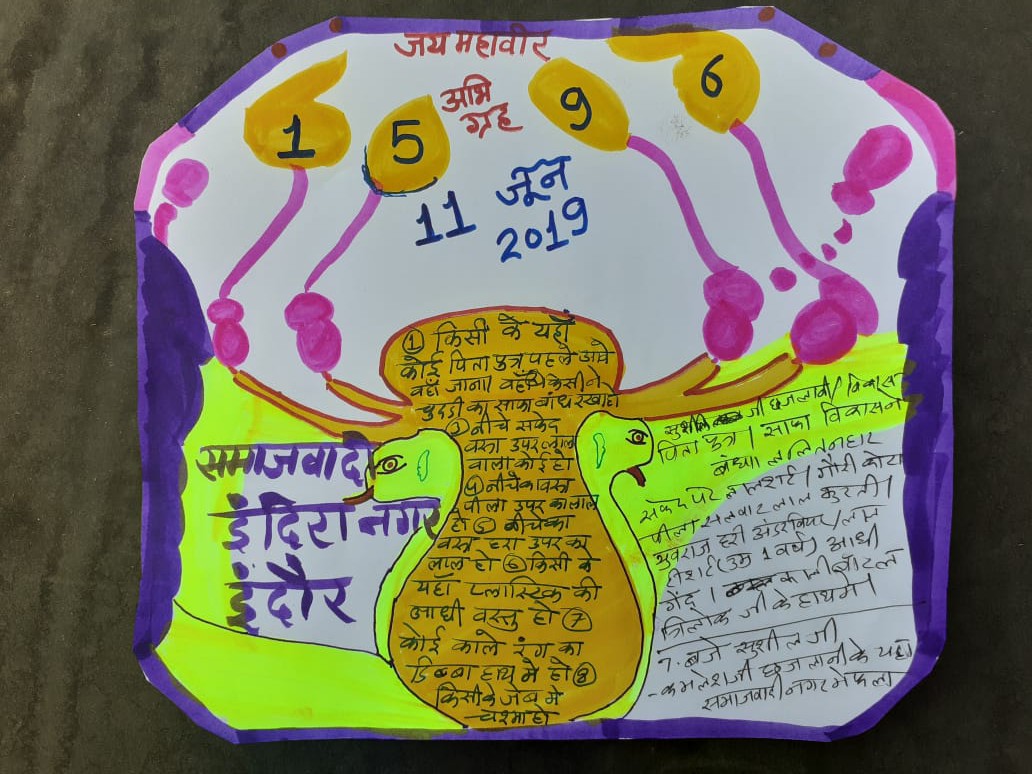 जय महावीर
अभि
ग्रह
1 5 9 6
11 जून
2019
① किसी के यहाँ
कोई पिता पुत्र पहले आमे
वहाँ जाना वहाँ किसीने
चुदड़ी का साफा बांध रखा हो
③ नीचे सफेद
वस्त्र उपर लाल
वाला कोई हो
④ नीचे का वस्त्र
पीला उपर का लाल
हो ⑤ नीचे का
वस्त्र हरा उपर का
लाल हो ⑥ किसी के
यहाँ प्लास्टिक की
आधी वस्तु हो ⑦
कोई काले रंग का
डिब्बा हाथ मे हो ⑧
किसीके जेब मे
चश्मा हो
समाजवादी
इंदिरा नगर
इंदौर
सुशील जी छजलानी / विकास
पिता पुत्र | साफा विकासने
बंधा | ललित नहार
सफेद पेंट लाल शर्ट | गौरी कोटा
पीला सलवार लाल कुरती |
युवराज हरी अंडरवियर / लाल
टीशर्ट (उम्र 1 वर्ष) आधी
गेंद | काली बॉटल
त्रिलोक जी के हाथ मे |
7. बजे सुशील जी
- कमलेशजी छजलानी के यहाँ
समाजवादी नगर मे फला